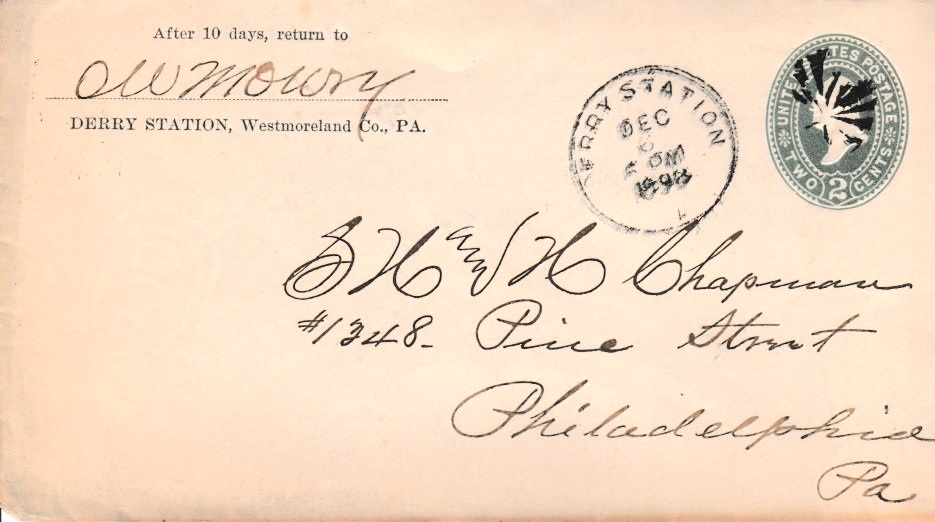 After 10 days, return to
OW Mowry
DERRY STATION, Westmoreland Co., PA.
DERRY STATION
DEC
6 PM
1893
UNITED STATES POSTAGE
TWO 2 CENTS
S H and H Chapman
#1348- Pine Street
Philadelphia
Pa